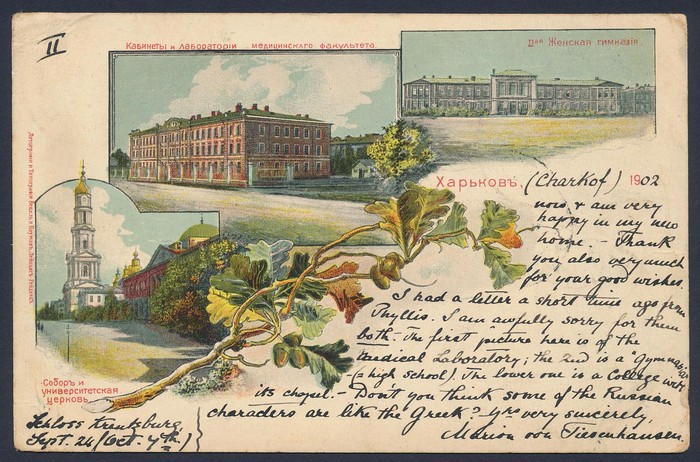 II
Кабинеты и лабораторіи медицинскаго факультета.
Ⅱая Женская гимназія
Харьковъ, (Charkof) 1902
now & am very
happy in my new
home. - Thank
you also very much
for your good wishes.
I had a letter a short time ago from
Phyllis. I am awfully sorry for them
both. - The first picture here is of the
Medical Laboratory; the 2nd is a "Gymnas:
(= high school). The lower one is a College with
its chapel. - Don't you think some of the Russian
characters are like the Greek? - Yrs very sincerely,
Marion von Tiesenhausen.
Соборъ и
университетская
церковь.
Schloss Kreutzburg,
Sept. 24 (Oct. 7th.)